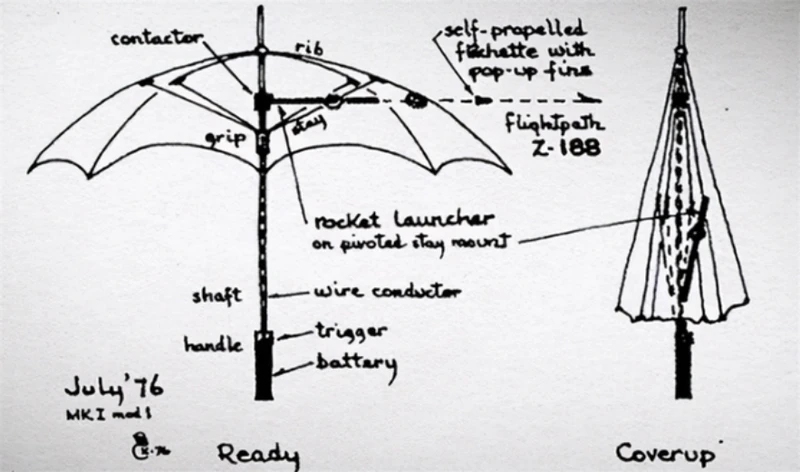 contactor
rib
self-propelled
flechette with
pop-up fins
grip
stay
flightpath
Z-188
rocket launcher
on pivoted stay mount
shaft
wire conductor
handle
trigger
battery
July '76
MK I mod 1
Ready
Coverup